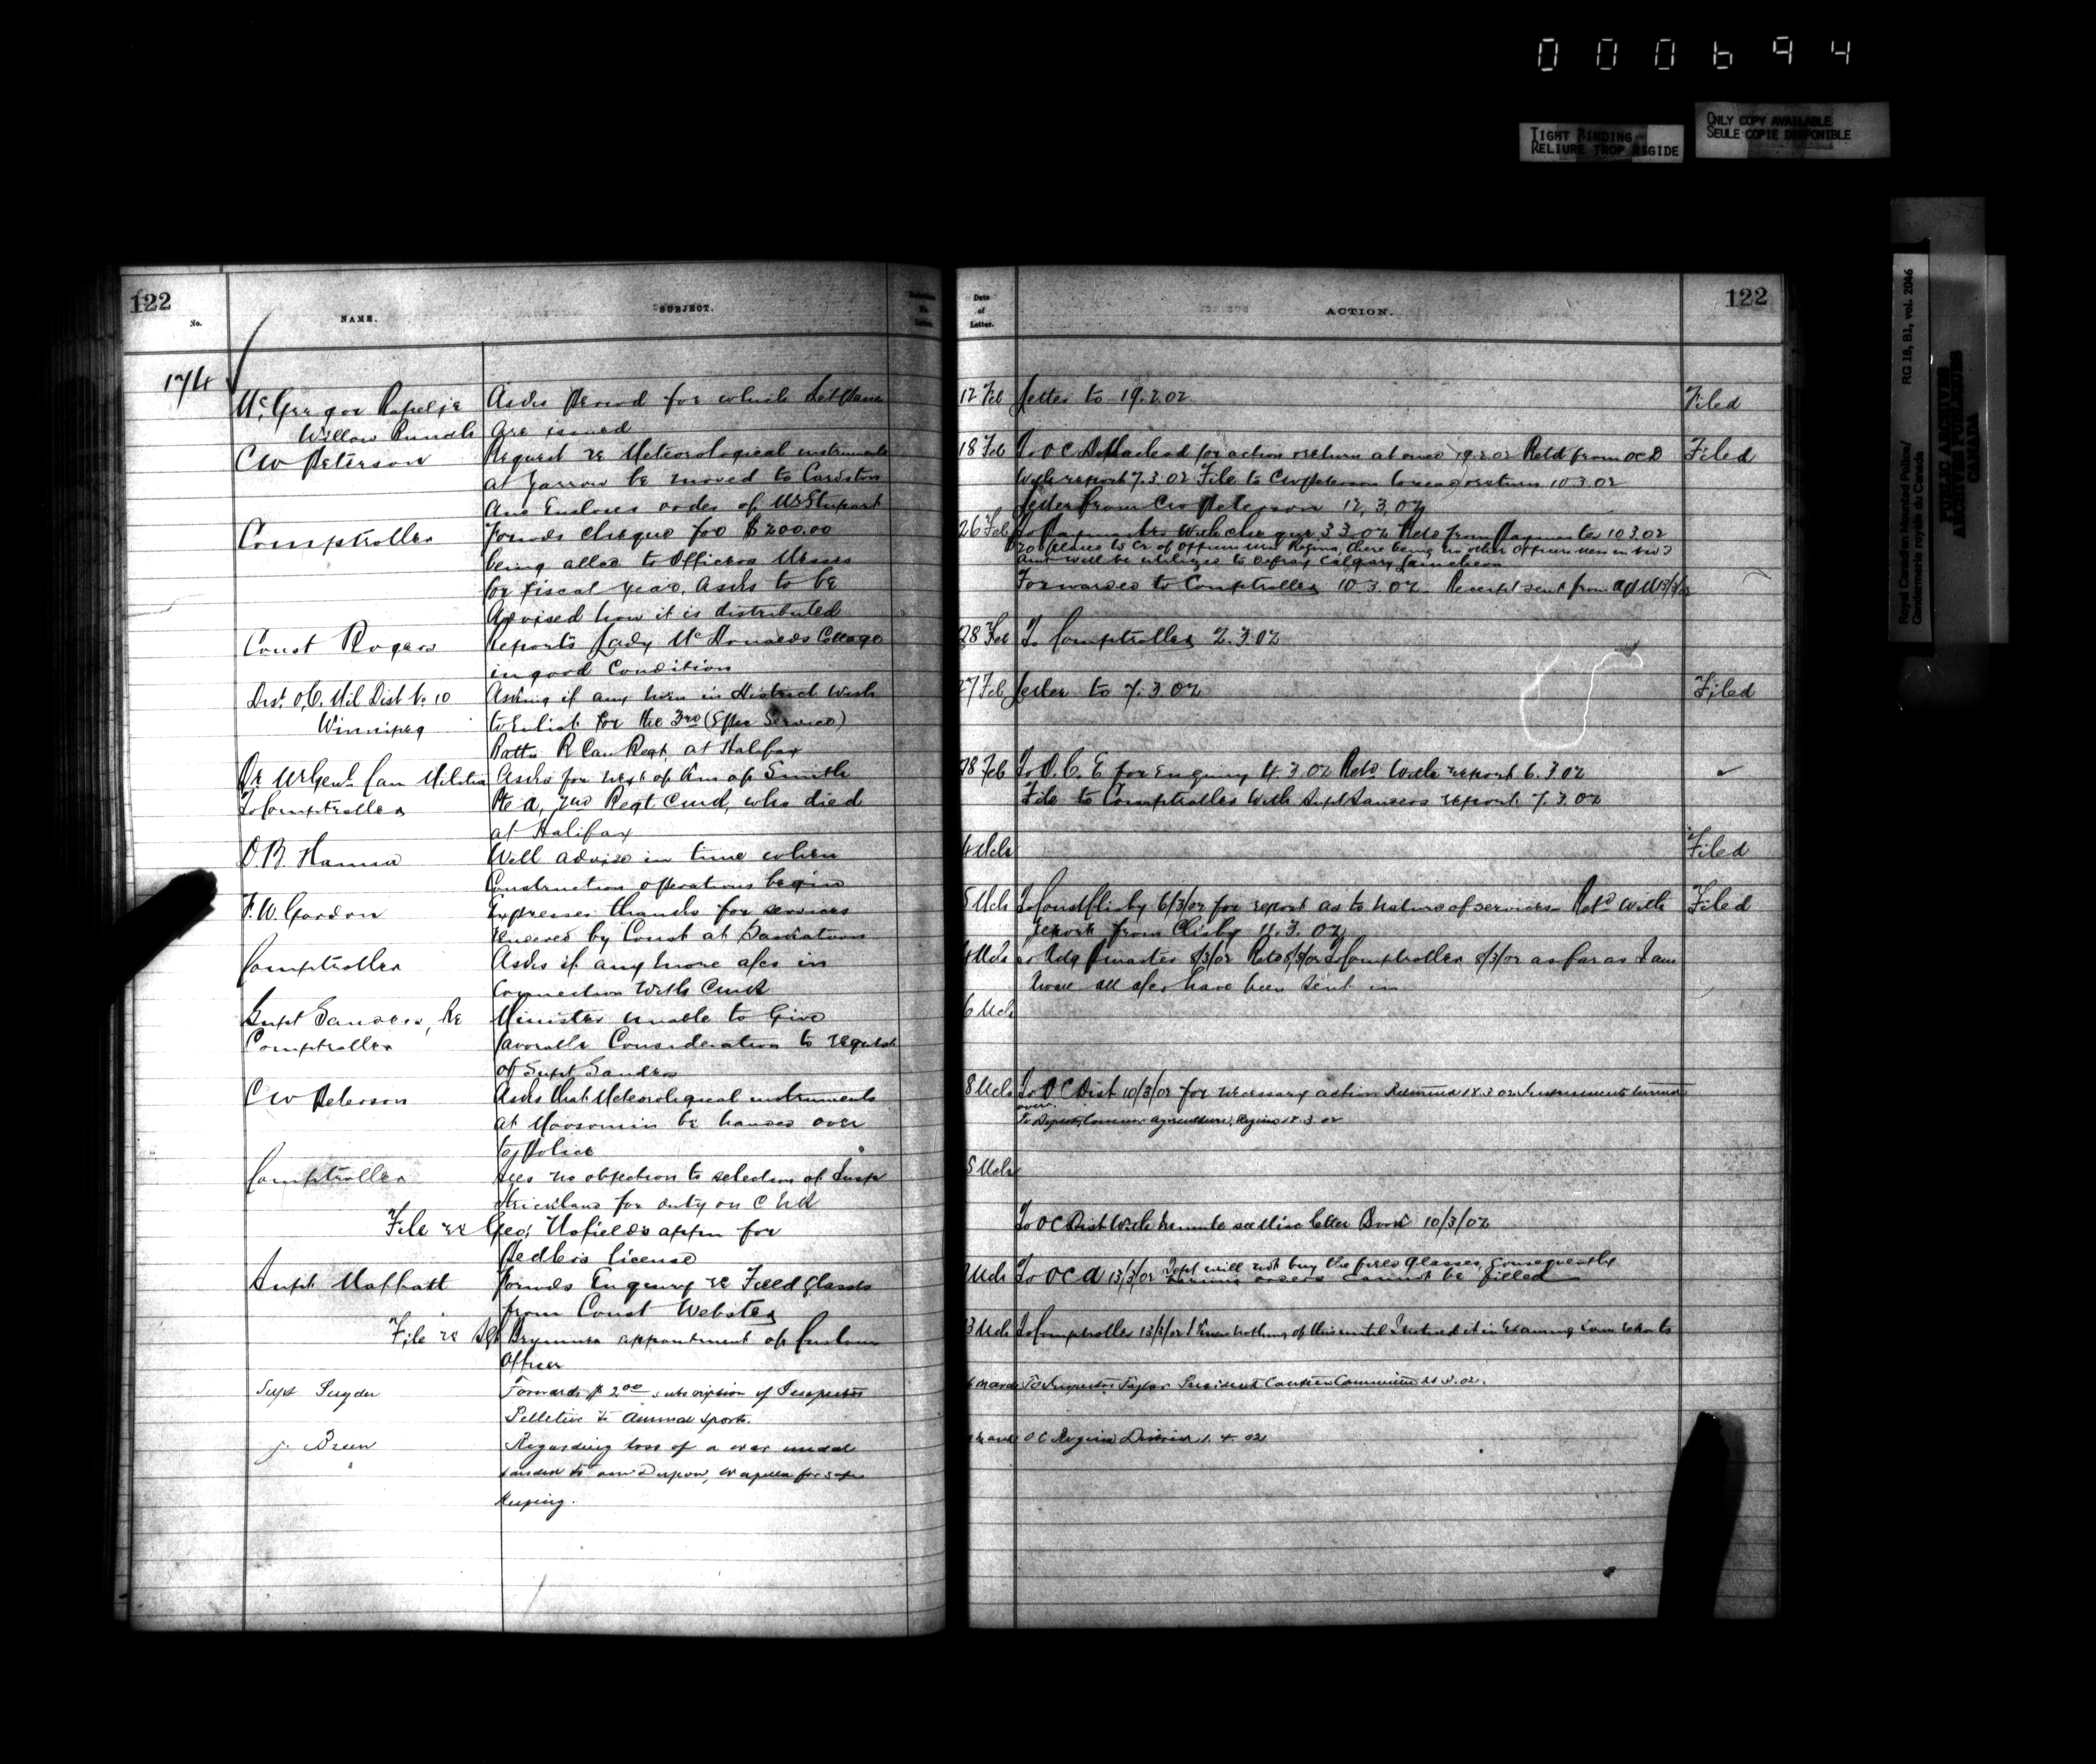 000694
TIGHT BINDING
RELIURE TROP RIGIDE
ONLY COPY AVAILABLE
SEULE COPIE DISPONIBLE
Royal Canadian Mounted Police/
Gendarmerie royale du Canada
RG 18, B1, vol. 2046
PUBLIC ARCHIVES
ARCHIVES PUBLIQUES
CANADA
122
No.
NAME.
SUBJECT.
174
McGregor Rapelje
Willow Bunch
Asks Period for which
are issued
CW Peterson
Request re Meteorological instruments
at Yarrow be moved to Cardston
Ans Encloses order of Mr Stupart
Comptroller
Forwds cheque for $200.00
being allce to Officers Messes
for fiscal year, Asks to be
Advised how it is distributed
Const Rogers
Reports Lady McDonalds Cottage
in good Condition
Dist. O.C. Mil Dist No. 10
Winnipeg
Asking if any men in District wish
to Enlist for the 3rd (Spec Service)
Battn R Can Regt. at Halifax
Can Militia
To Comptroller
Asks for next of kin of Smith
Pte A, 2nd Regt CMR, who died
at Halifax
D.B. Hanna
Will advise in time when
Construction operations begin
F.W. Gordon
Expresses thanks for services
rendered by Const at Saskatoon
Comptroller
Asks if any more a/cs in
Connection with CMR
Supt Sanders, Re
Comptroller
Minister unable to Give
favorable Consideration to request
of Supt Sanders
CW Peterson
Asks that Meteorological instruments
at Moosomin be handed over
to Police
Comptroller
Sees no objection to selection of Insp
Strickland for duty on CMR
File re Geo: appn for
Pedlers license
Supt Moffatt
Forwds Enquiry re Field Glasses
from Const Webster
File re Sgt Brymner appointment of Customs
Officer
Supt Snyder
Forwards $2.00 subscription of Inspector
Pelletier to Annual Sports.
J. Breen
Regarding loss of a war medal
handed to Wapella for safe
keeping.
122
Date
of
Letter.
ACTION.
12 Feb Letter to 19.2.02 Filed
18 Feb To OC D Macleod for action & return at once 19.2.02 Retd from OC D Filed
With report 7.3.02 File to CW Peterson to read & return 10.3.02
Letter from CW Peterson 12.3.02
26 Feb To Paymaster With cheque 3.3.02 Retd from Paymaster 10.3.02
200 placed to Cr of Officers mess Regina, there being no other officers mess in
Amt will be utilized to defray Calgary Luncheon
Forwarded to Comptroller 10.3.02 Receipt sent from
28 Feb To Comptroller 2.3.02
27 Feb Letter to 7.3.02 Filed
28 Feb To O.C. E for Enquiry 4.3.02 Retd. With report 6.3.02
File to Comptroller With Supt Sanders report 7.3.02
4 Mch Filed
5 Mch To Const Clisby 6/3/02 for report as to nature of services Retd With Filed
report from Clisby 11.3.02
4 Mch To Comptroller 8/3/02 as far as I am
aware all a/cs have been sent in
6 Mch
8 Mch To OC Dist 10/3/02 for necessary action Returned 18.3.02 Instruments turned
over.
To Deputy Commr Agriculture, Regina 18.3.02
5 Mch
To OC Dist With minute see Misc letter Book 10/3/02
Mch To OC A 13/3/02 Dept will not buy the field Glasses, Consequently
orders cannot be filled
3 Mch To Comptroller 13/3/02 I Knew nothing of this until I noticed it in Examining
To Inspector Taylor President Canteen Committee
OC Regina District 1.4.02